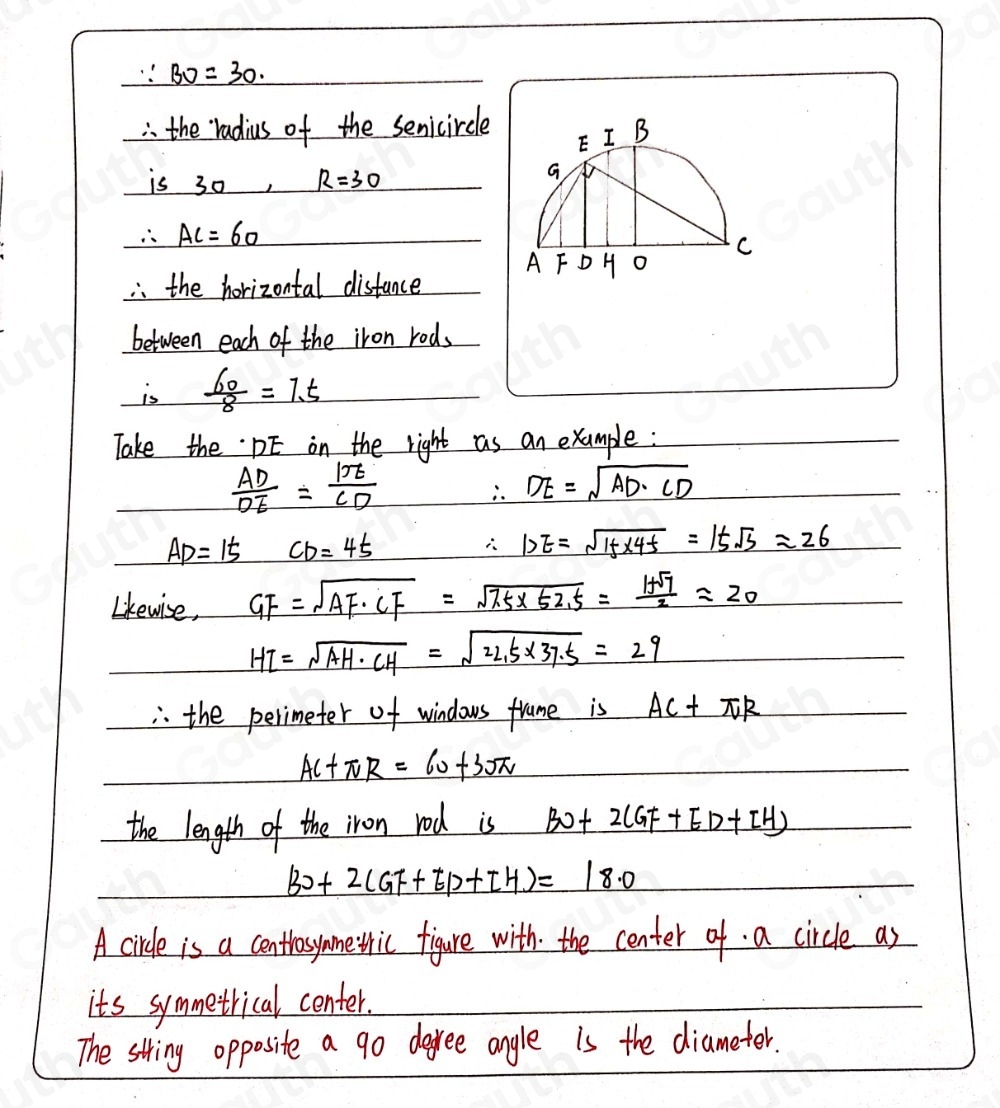 ∵ BO = 30.
∴ the radius of the senicircle
is 30 , R=30
∴ AC = 60
∴ the horizontal distance
between each of the iron rods
is 60/8 = 7.5
E I B
G
A F D H O C
Take the DE on the right as an example:
AD/DE = DE/CD ∴ DE = √AD· CD
AD = 15 CD = 45 ∴ DE = √15×45 = 15√3 ≈ 26
Likewise, GF = √AF· CF = √7.5× 52.5 = 15√7/2 ≈ 20
HI = √AH · CH = √22.5×37.5 = 29
∴ the perimeter of windows frame is AC + πR
AC + πR = 60+30π
the length of the iron rod is BO+ 2(GF+ED+IH)
BO+ 2(GF+ED+IH)= 18.0
A circle is a centrosymmetric figure with. the center of .a circle as
its symmetrical center.
The string opposite a 90 degree angle is the diameter.